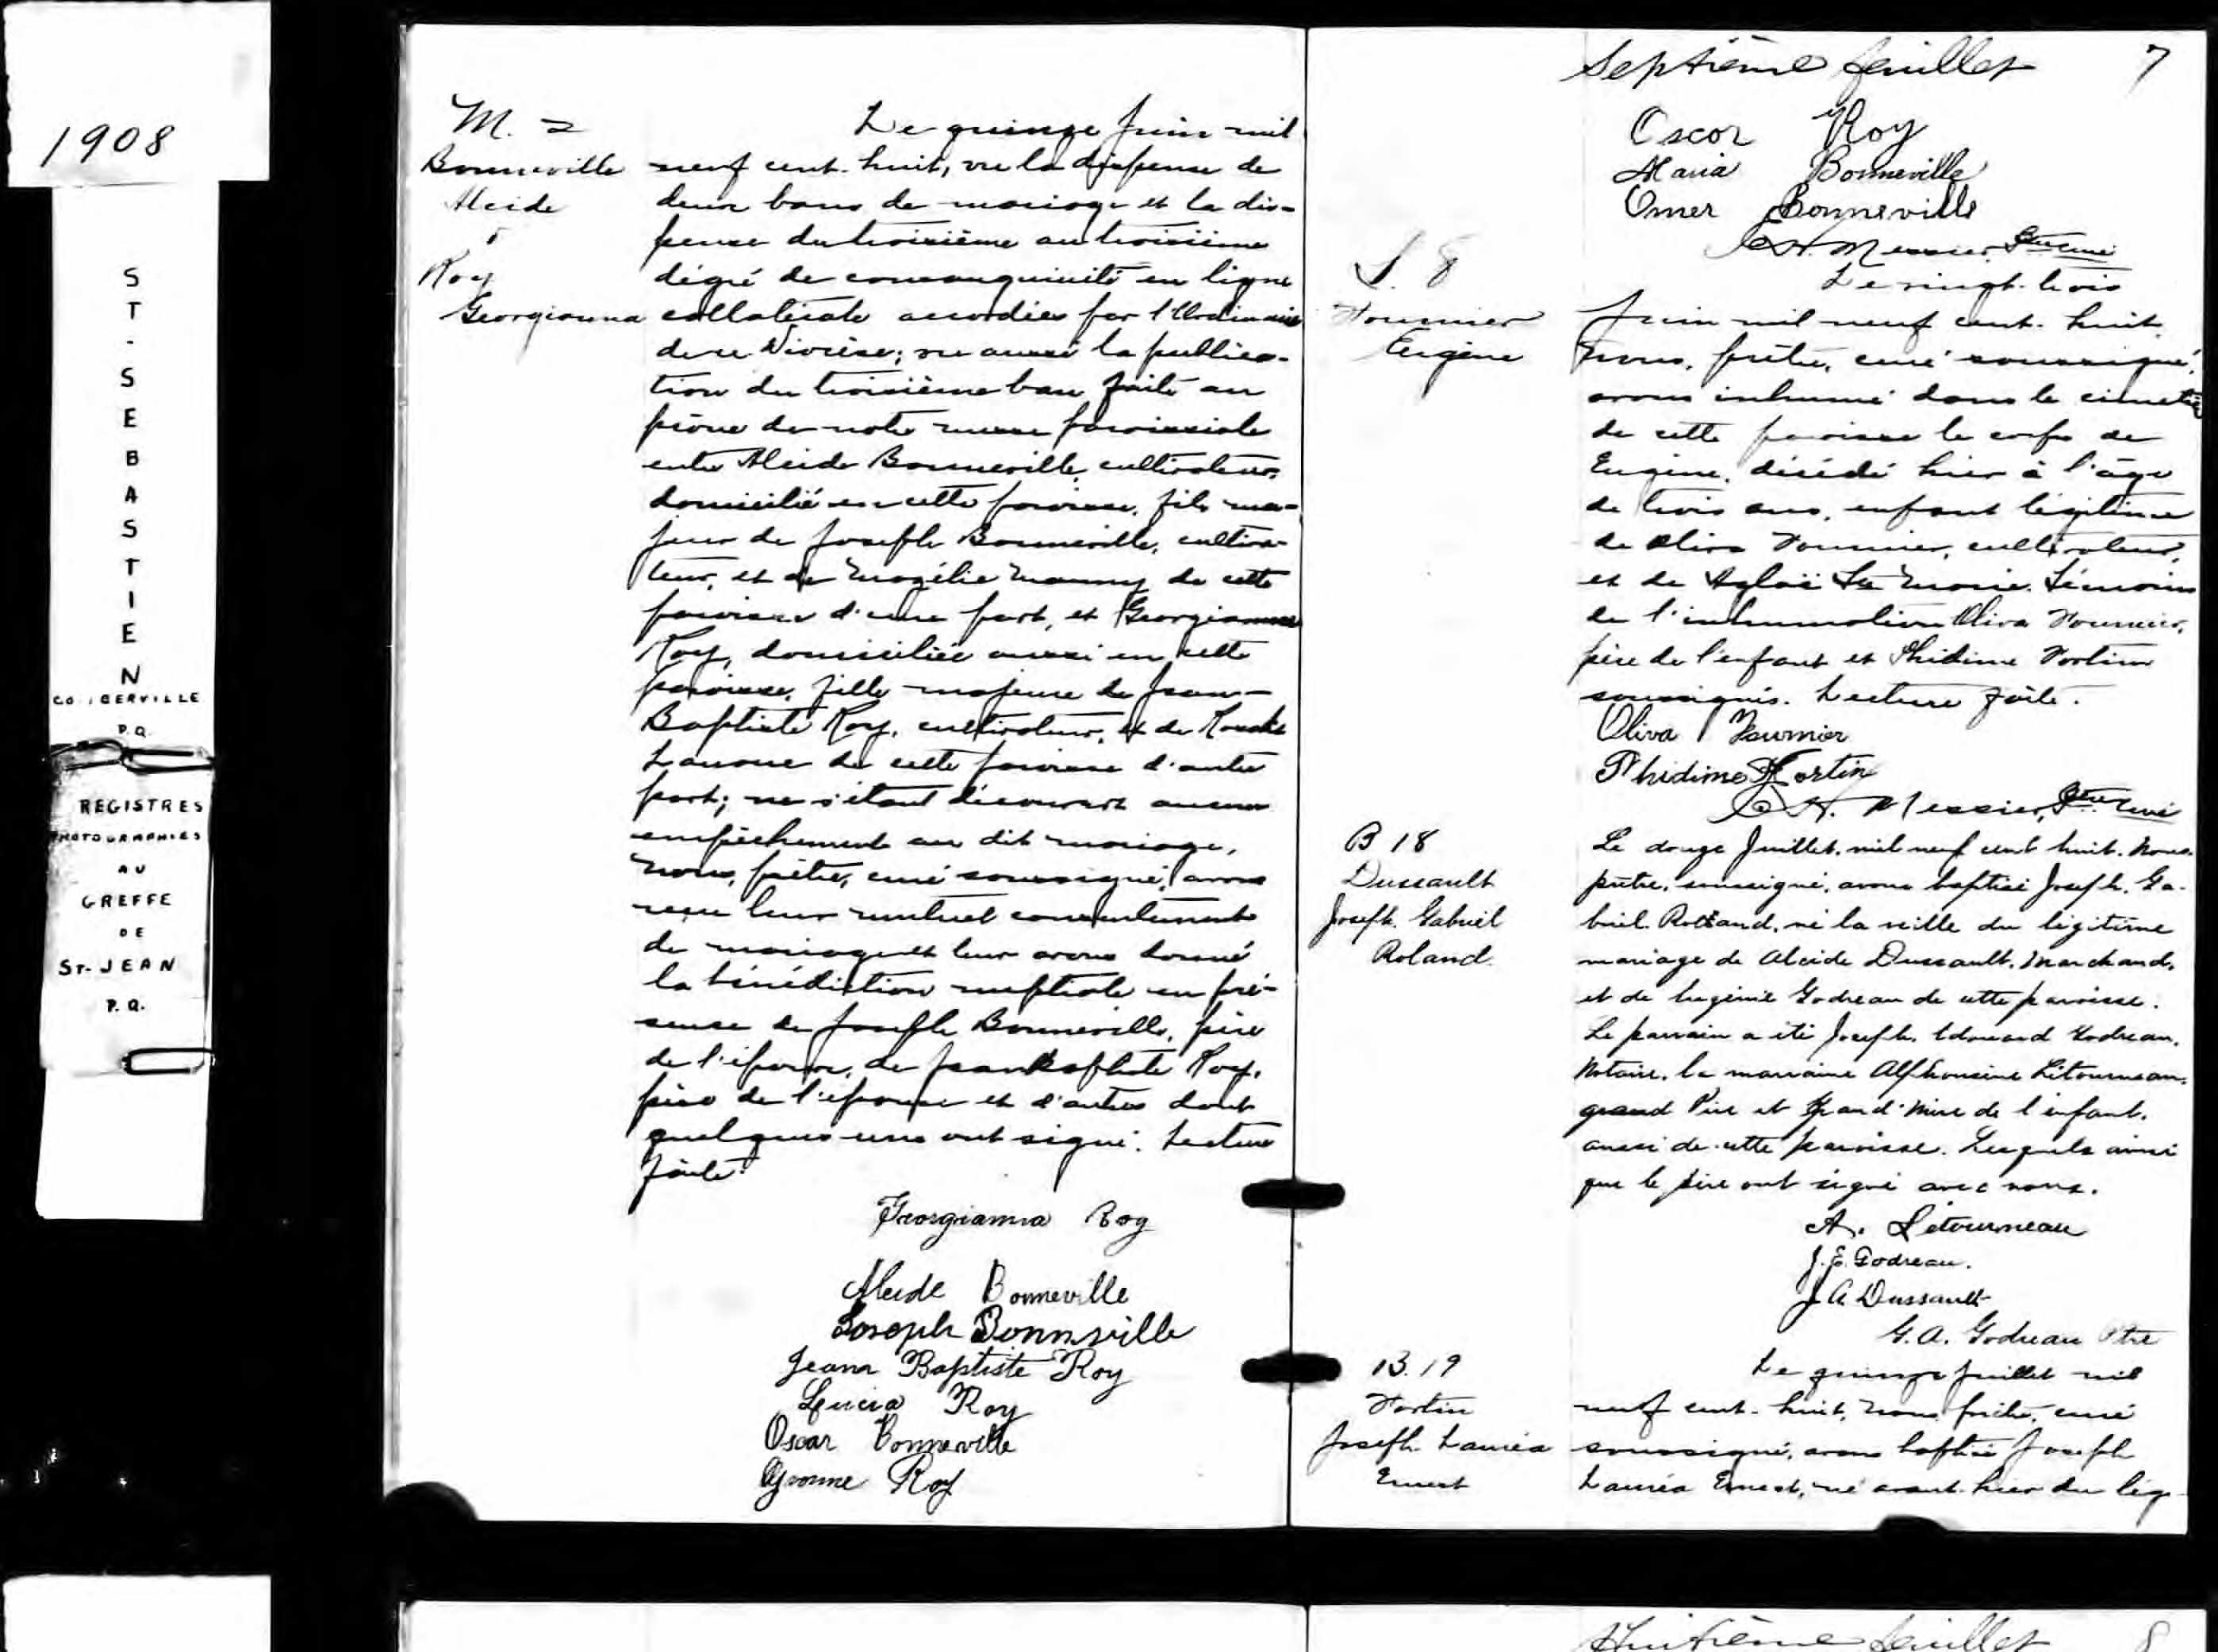 1908
ST-SEBASTIEN
CO. IBERVILLE
P.Q.
REGISTRES
PHOTOGRAPHIÉS
AU
GREFFE
DE
ST-JEAN
P.Q.
M. 2
Bonneville
Alcide
&
Roy
Georgianna
Le quinze Juin mil
neuf cent-huit, vu la dispense de
deux bans de mariage et la dis-
pense du troisième au troisième
dégré de consanguinité en ligne
collatérale accordées par l'Ordinaire
de ce Diocèse; vu aussi la publica-
tion du troisième ban faite au
prône de notre messe paroissiale
entre Alcide Bonneville, cultivateur,
domicilié en cette paroisse, fils ma-
jeur de Joseph Bonneville, cultiva-
teur, et de de cette
paroisse d'une part, et Georgianna
Roy, domiciliée aussi en cette
paroisse, fille majeure de Jean-
Baptiste Roy, cultivateur, et de
de cette paroisse d'autre
part; ne s'étant découvert aucun
empêchement au dit mariage,
nous, prêtre, curé soussigné, avons
reçu leur mutuel consentement
de mariage et leur avons donné
la bénédiction nuptiale en pré-
sence de Joseph Bonneville, père
de l'époux, de Jean Baptiste Roy,
père de l'épouse et d'autres dont
quelques-uns ont signé. Lecture
faite.
Georgianna Roy
Alcide Bonneville
Joseph Bonneville
Jean Baptiste Roy
Lucia Roy
Oscar Bonneville
Yvonne Roy
Septième feuillet 7
Oscar Roy
Maria Bonneville
Omer Bonneville
H. Messier, Ptre curé
S. 8
Fournier
Eugène
Le vingt-trois
Juin mil neuf cent-huit,
nous, prêtre, curé soussigné,
avons inhumé dans le cimetière
de cette paroisse le corps de
Eugène, décédé hier à l'âge
de trois ans, enfant légitime
de Oliva Fournier, cultivateur,
et de Aglaé Ste Marie. Témoins
de l'inhumation Oliva Fournier,
père de l'enfant et Phidime Fortin
soussignés. Lecture faite.
Oliva Fournier
Phidime Fortin
H. Messier, Ptre curé
B 18
Dussault
Joseph. Gabriel
Roland.
Le douze Juillet, mil neuf cent huit. Nous
prêtre, soussigné, avons baptisé Joseph. Ga-
briel. Rolland, né la veille du légitime
mariage de Alcide Dussault, Marchand,
et de Eugénie Godreau de cette paroisse.
Le parrain a été Joseph. Edouard Godreau,
Notaire, la marraine Alphonsine Létourneau,
grand Père et grand'Mère de l'enfant,
aussi de cette paroisse. Lesquels ainsi
que le père ont signé avec nous.
A. Létourneau
J. E. Godreau.
J A Dussault
G. A. Godreau Ptre
B. 19
Fortin
Joseph Lauréa
Ernest
Le quinze juillet mil
neuf cent-huit, nous, prêtre, curé
soussigné, avons baptisé Joseph
Lauréa Ernest, né avant-hier du lég-
Huitième feuillet 8